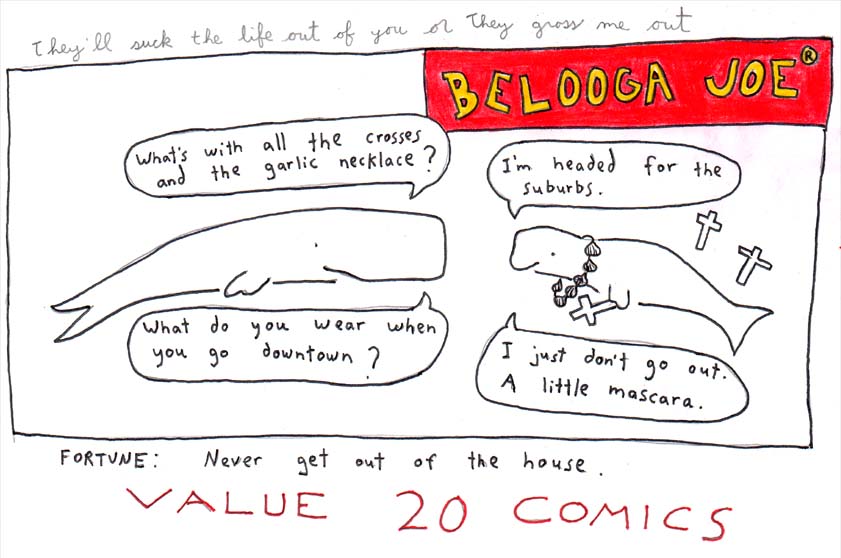 They'll suck the life out of you or They gross me out
BELOOGA JOE®
What's with all the crosses
and the garlic necklace?
I'm headed for the
suburbs.
What do you wear when
you go downtown?
I just don't go out.
A little mascara.
FORTUNE: Never get out of the house.
VALUE 20 COMICS